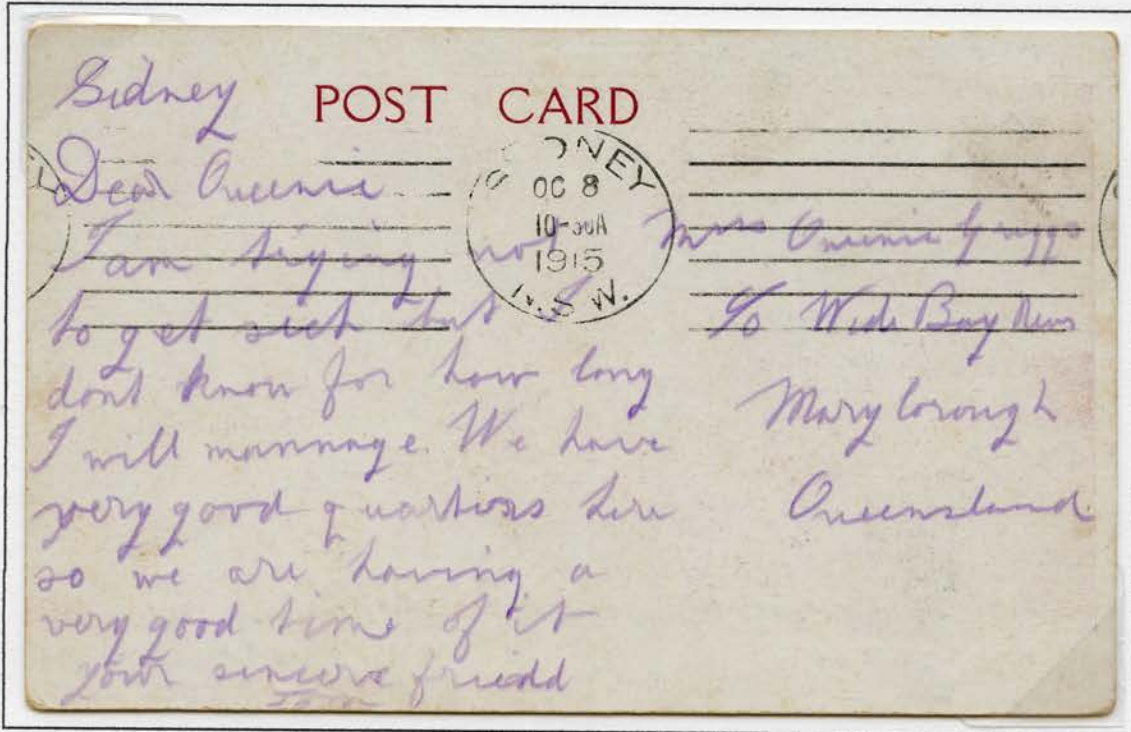 Sidney
POST CARD
SYDNEY
OC 8
10-30A
1915
N.S.W.
Dear Queenie
I am trying not
to get sick but I
dont know for how long
I will mannage. We have
very good quartiors here
so we are having a
very good time of it
your sincere friedd
Tom
Miss Queenie Griggs
C/o Wide Bay News
Maryborough
Queensland.